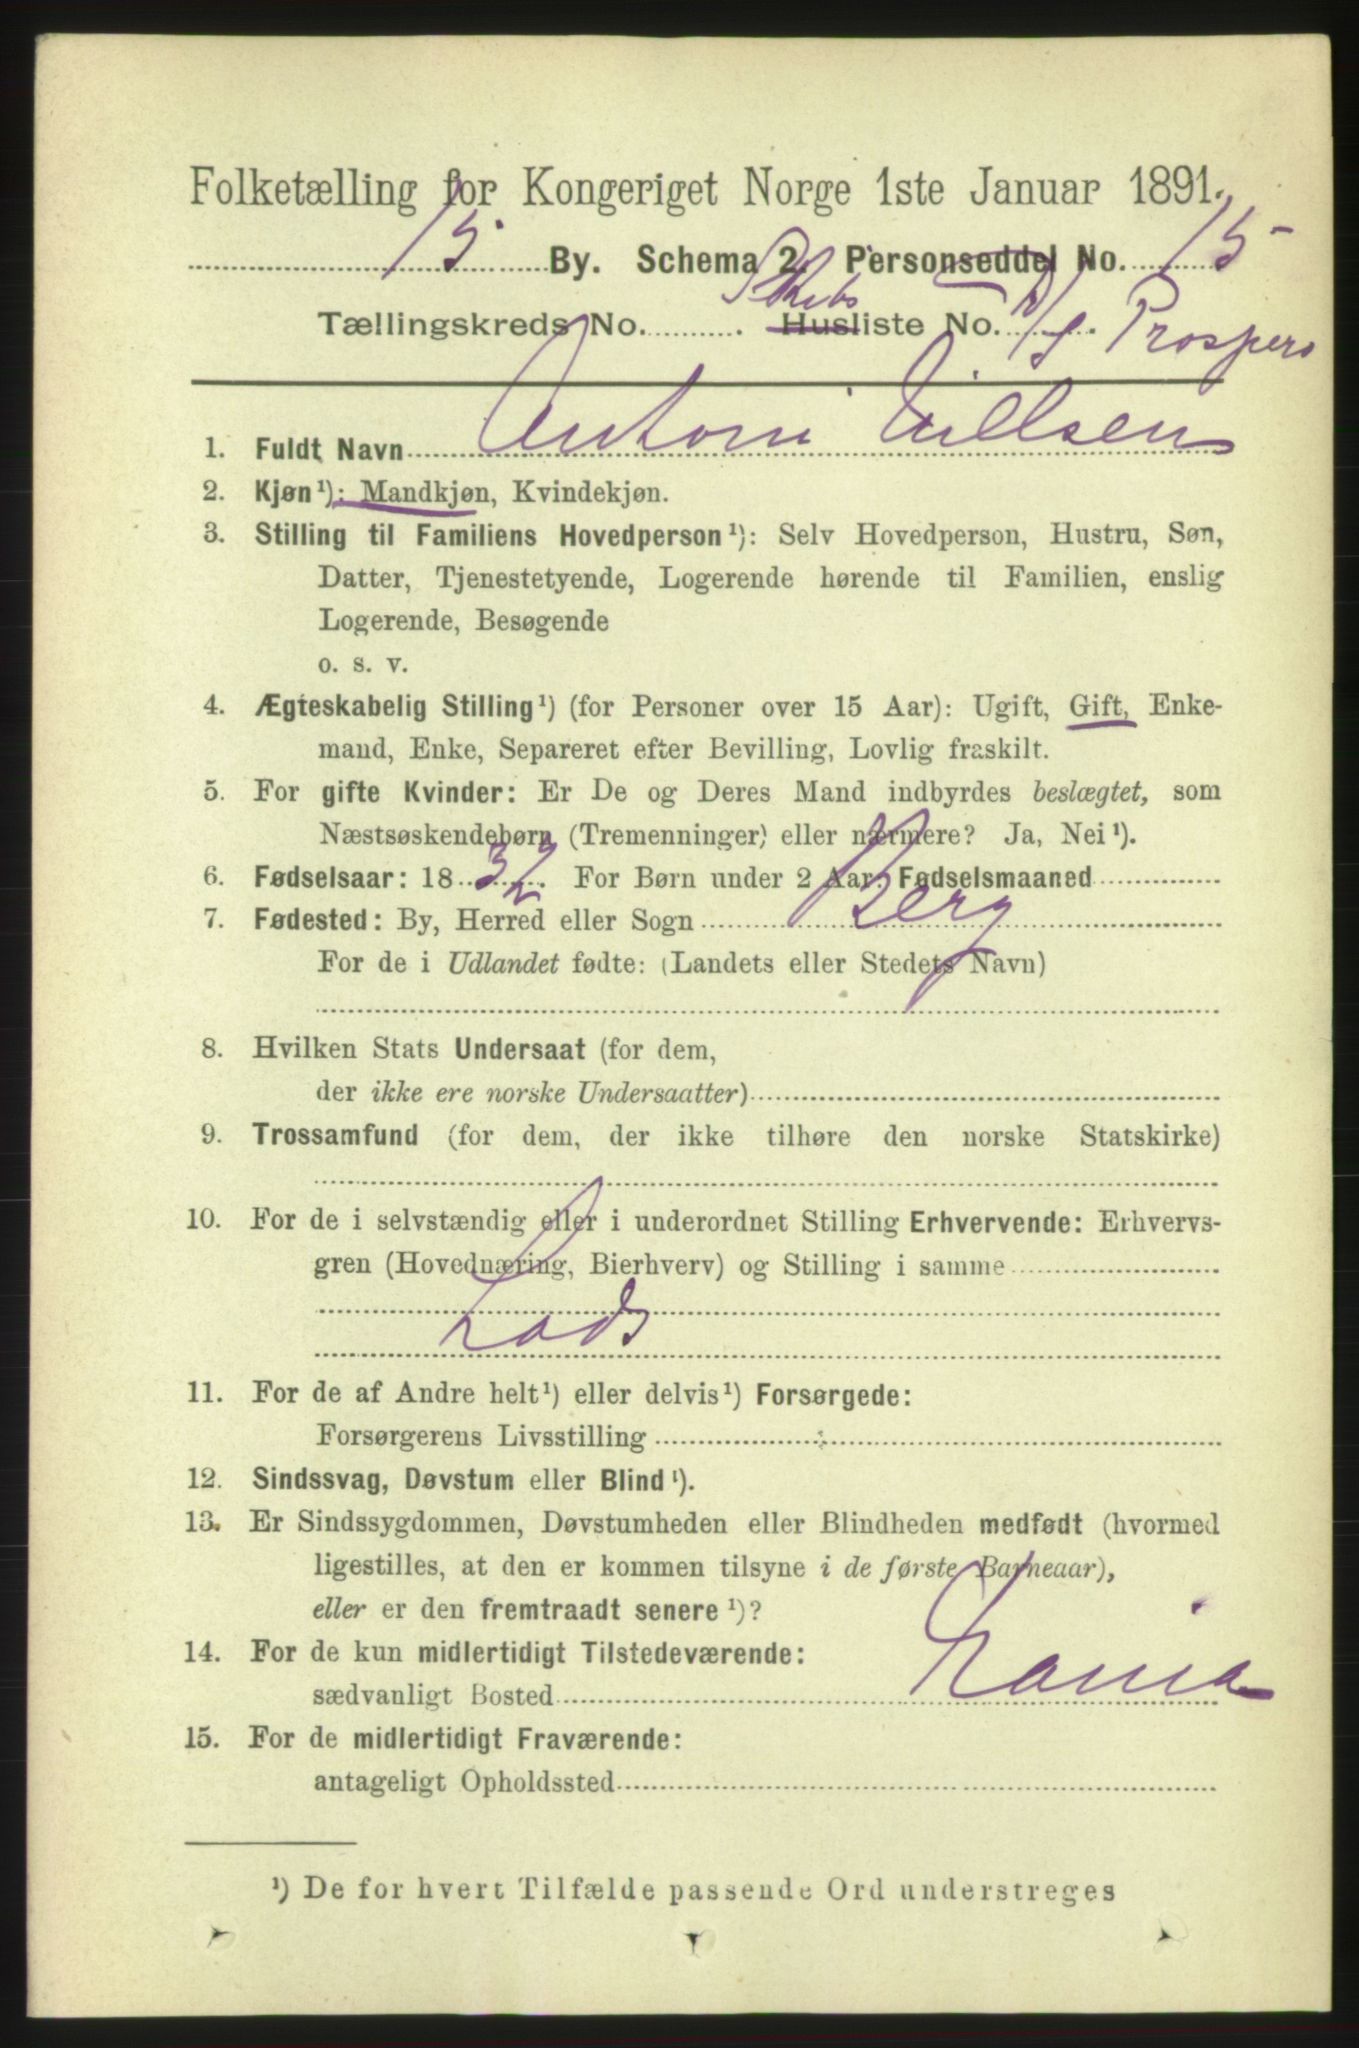 Folketælling for Kongeriget Norge 1ste Januar 1891.
15 By. Schema 2. Personseddel No. 15
Skibs
Tællingskreds No. Husliste No. D/S Prospero
1. Fuldt Navn Antoni Nillsen
2. Kjøn¹): Mandkjøn, Kvindekjøn.
3. Stilling til Familiens Hovedperson¹): Selv Hovedperson, Hustru, Søn,
Datter, Tjenestetyende, Logerende hørende til Familien, enslig
Logerende, Besøgende
o. s. v.
4. Ægteskabelig Stilling¹) (for Personer over 15 Aar): Ugift, Gift, Enke-
mand, Enke, Separeret efter Bevilling, Lovlig fraskilt.
5. For gifte Kvinder: Er De og Deres Mand indbyrdes beslægtet, som
Næstsøskendebørn (Tremenninger) eller nærmere? Ja, Nei¹).
6. Fødselsaar: 1832. For Børn under 2 Aar: Fødselsmaaned
7. Fødested: By, Herred eller Sogn Berg
For de i Udlandet fødte: (Landets eller Stedets Navn)
8. Hvilken Stats Undersaat (for dem,
der ikke ere norske Undersaatter)
9. Trossamfund (for dem, der ikke tilhøre den norske Statskirke)
10. For de i selvstændig eller i underordnet Stilling Erhvervende: Erhvervs-
gren (Hovednæring, Bierhverv) og Stilling i samme
Lods
11. For de af Andre helt¹) eller delvis¹) Forsørgede:
Forsørgerens Livsstilling
12. Sindssvag, Døvstum eller Blind¹).
13. Er Sindssygdommen, Døvstumheden eller Blindheden medfødt (hvormed
ligestilles, at den er kommen tilsyne i de første Barneaar),
eller er den fremtraadt senere¹)?
14. For de kun midlertidigt Tilstedeværende:
sædvanligt Bosted
15. For de midlertidigt Fraværende:
antageligt Opholdssted
¹) De for hvert Tilfælde passende Ord understreges